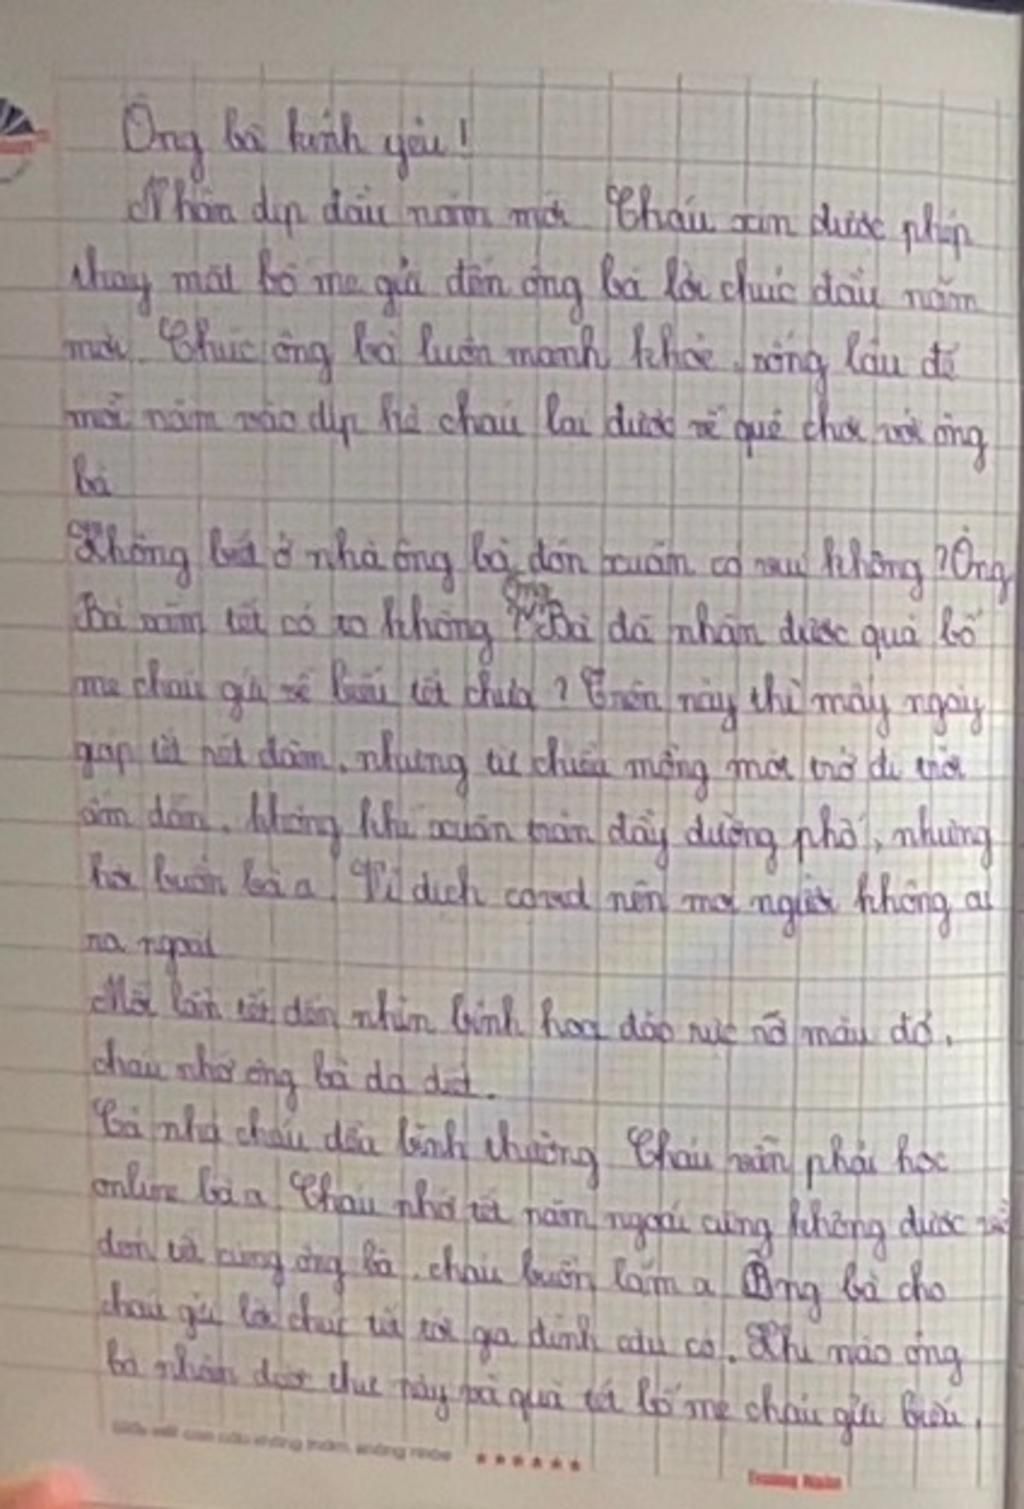 Ông bà kính yêu!
Nhân dịp đầu năm mới Cháu xin được phép
thay mặt bố mẹ gửi đến ông bà lời chúc đầu năm
mới. Chúc ông bà luôn mạnh khỏe, sống lâu để
mỗi năm vào dịp hè cháu lại được về quê chơi với ông
bà
Không biết ở nhà ông bà đón xuân có vui không? Ông
Bà năm tết có to không? Ông Bà đã nhận được quà bố
mẹ cháu gửi về biếu tết chưa? Trên này thì mấy ngày
giáp tết rét đậm, nhưng từ chiều mồng một trở đi trời
ấm dần, không khí xuân tràn đầy đường phố, nhưng
hơi buồn bà ạ. Vì dịch covid nên mọi người không ai
ra ngoài
Mỗi lần tết đến nhìn bình hoa đào rực rỡ màu đỏ,
cháu nhớ ông bà da diết.
Cả nhà cháu đều bình thường Cháu vẫn phải học
online bà ạ. Cháu nhớ tết năm ngoái cũng không được về
đón tết cùng ông bà, cháu buồn lắm ạ Ông bà cho
cháu gửi lời chúc tết tới gia đình cậu cô. Khi nào ông
bà nhận được thư này và quà tết bố mẹ cháu gửi biếu,